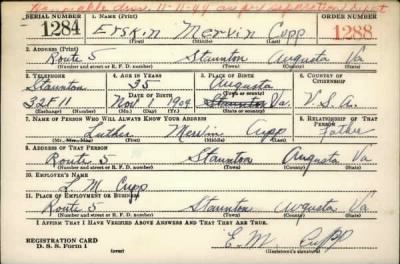 Honorable disc. 11-11-44 as per separation report
SERIAL NUMBER 1. NAME (Print) ORDER NUMBER
1284 Erskin Mervin Cupp 1288
2. ADDRESS (Print)
Route 5 Staunton Augusta Va
(Number and street or R. F. D. number) (Town) (County) (State)
3. TELEPHONE 4. AGE IN YEARS 5. PLACE OF BIRTH 6. COUNTRY OF CITIZENSHIP
Staunton 35 Augusta
DATE OF BIRTH
32F11 Nov 1 1909 Staunton Va. U.S.A.
(Exchange) (Number) (Mo.) (Day) (Yr.) (State or country)
7. NAME OF PERSON WHO WILL ALWAYS KNOW YOUR ADDRESS 8. RELATIONSHIP OF THAT PERSON
Luther Mervin Cupp Father
(Mr., Mrs., Miss)
9. ADDRESS OF THAT PERSON
Route 5 Staunton Augusta Va
(Number and street or R. F. D. number) (Town) (County) (State)
10. EMPLOYER'S NAME
L. M. Cupp
11. PLACE OF EMPLOYMENT OR BUSINESS
Route 5 Staunton Augusta Va
(Number and street or R. F. D. number) (Town) (County) (State)
I AFFIRM THAT I HAVE VERIFIED ABOVE ANSWERS AND THAT THEY ARE TRUE.
REGISTRATION CARD
D. S. S. Form 1 (over) E. M. Cupp
(Registrant's signature)